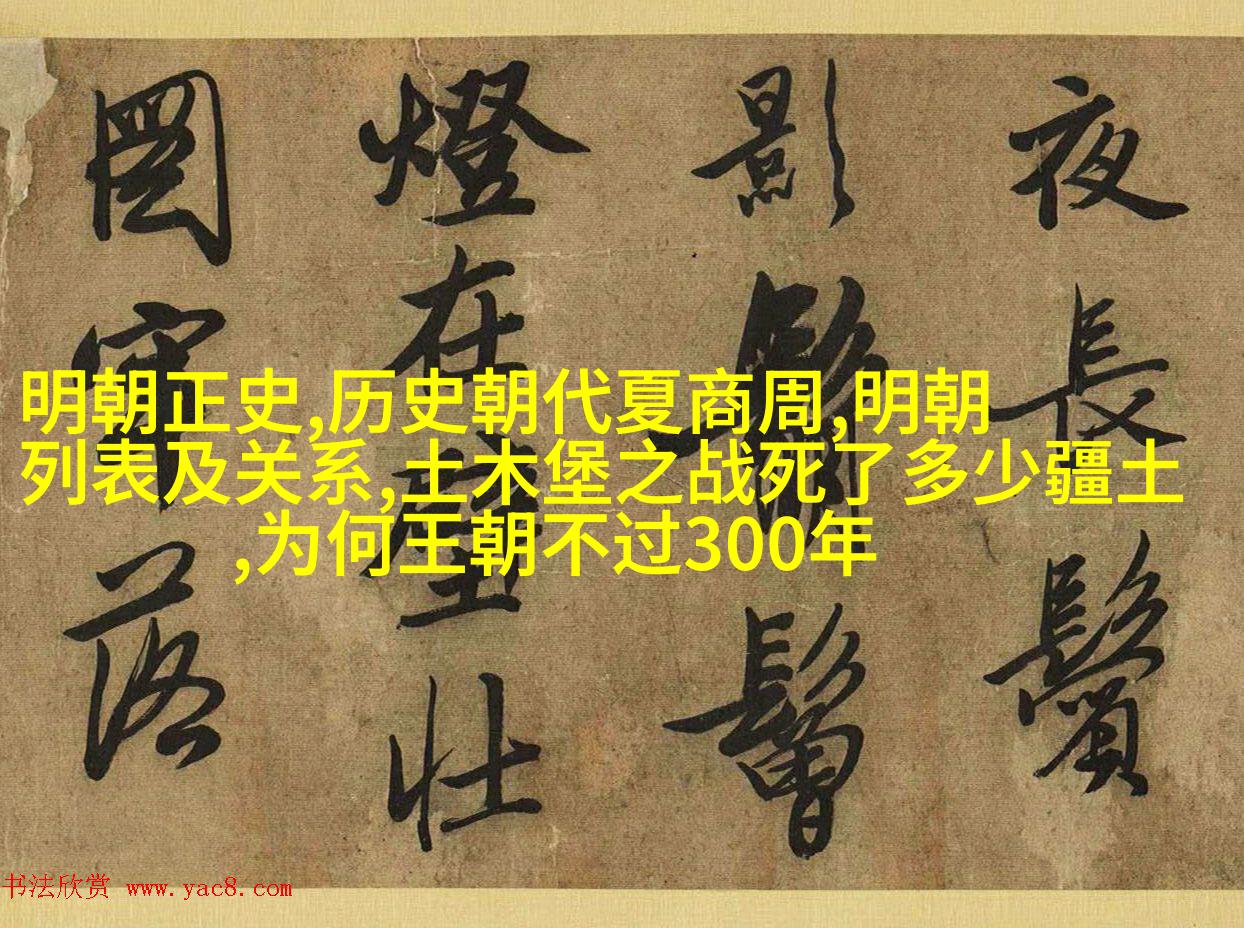 明朝正史,历史朝代夏商周,明朝
列表及关系,土木堡之战死了多少疆土
,为何王朝不过300年
夜長鬢
影鬅鬙
燈在壁壮
圖牢落
书法欣赏 www.yac8.com